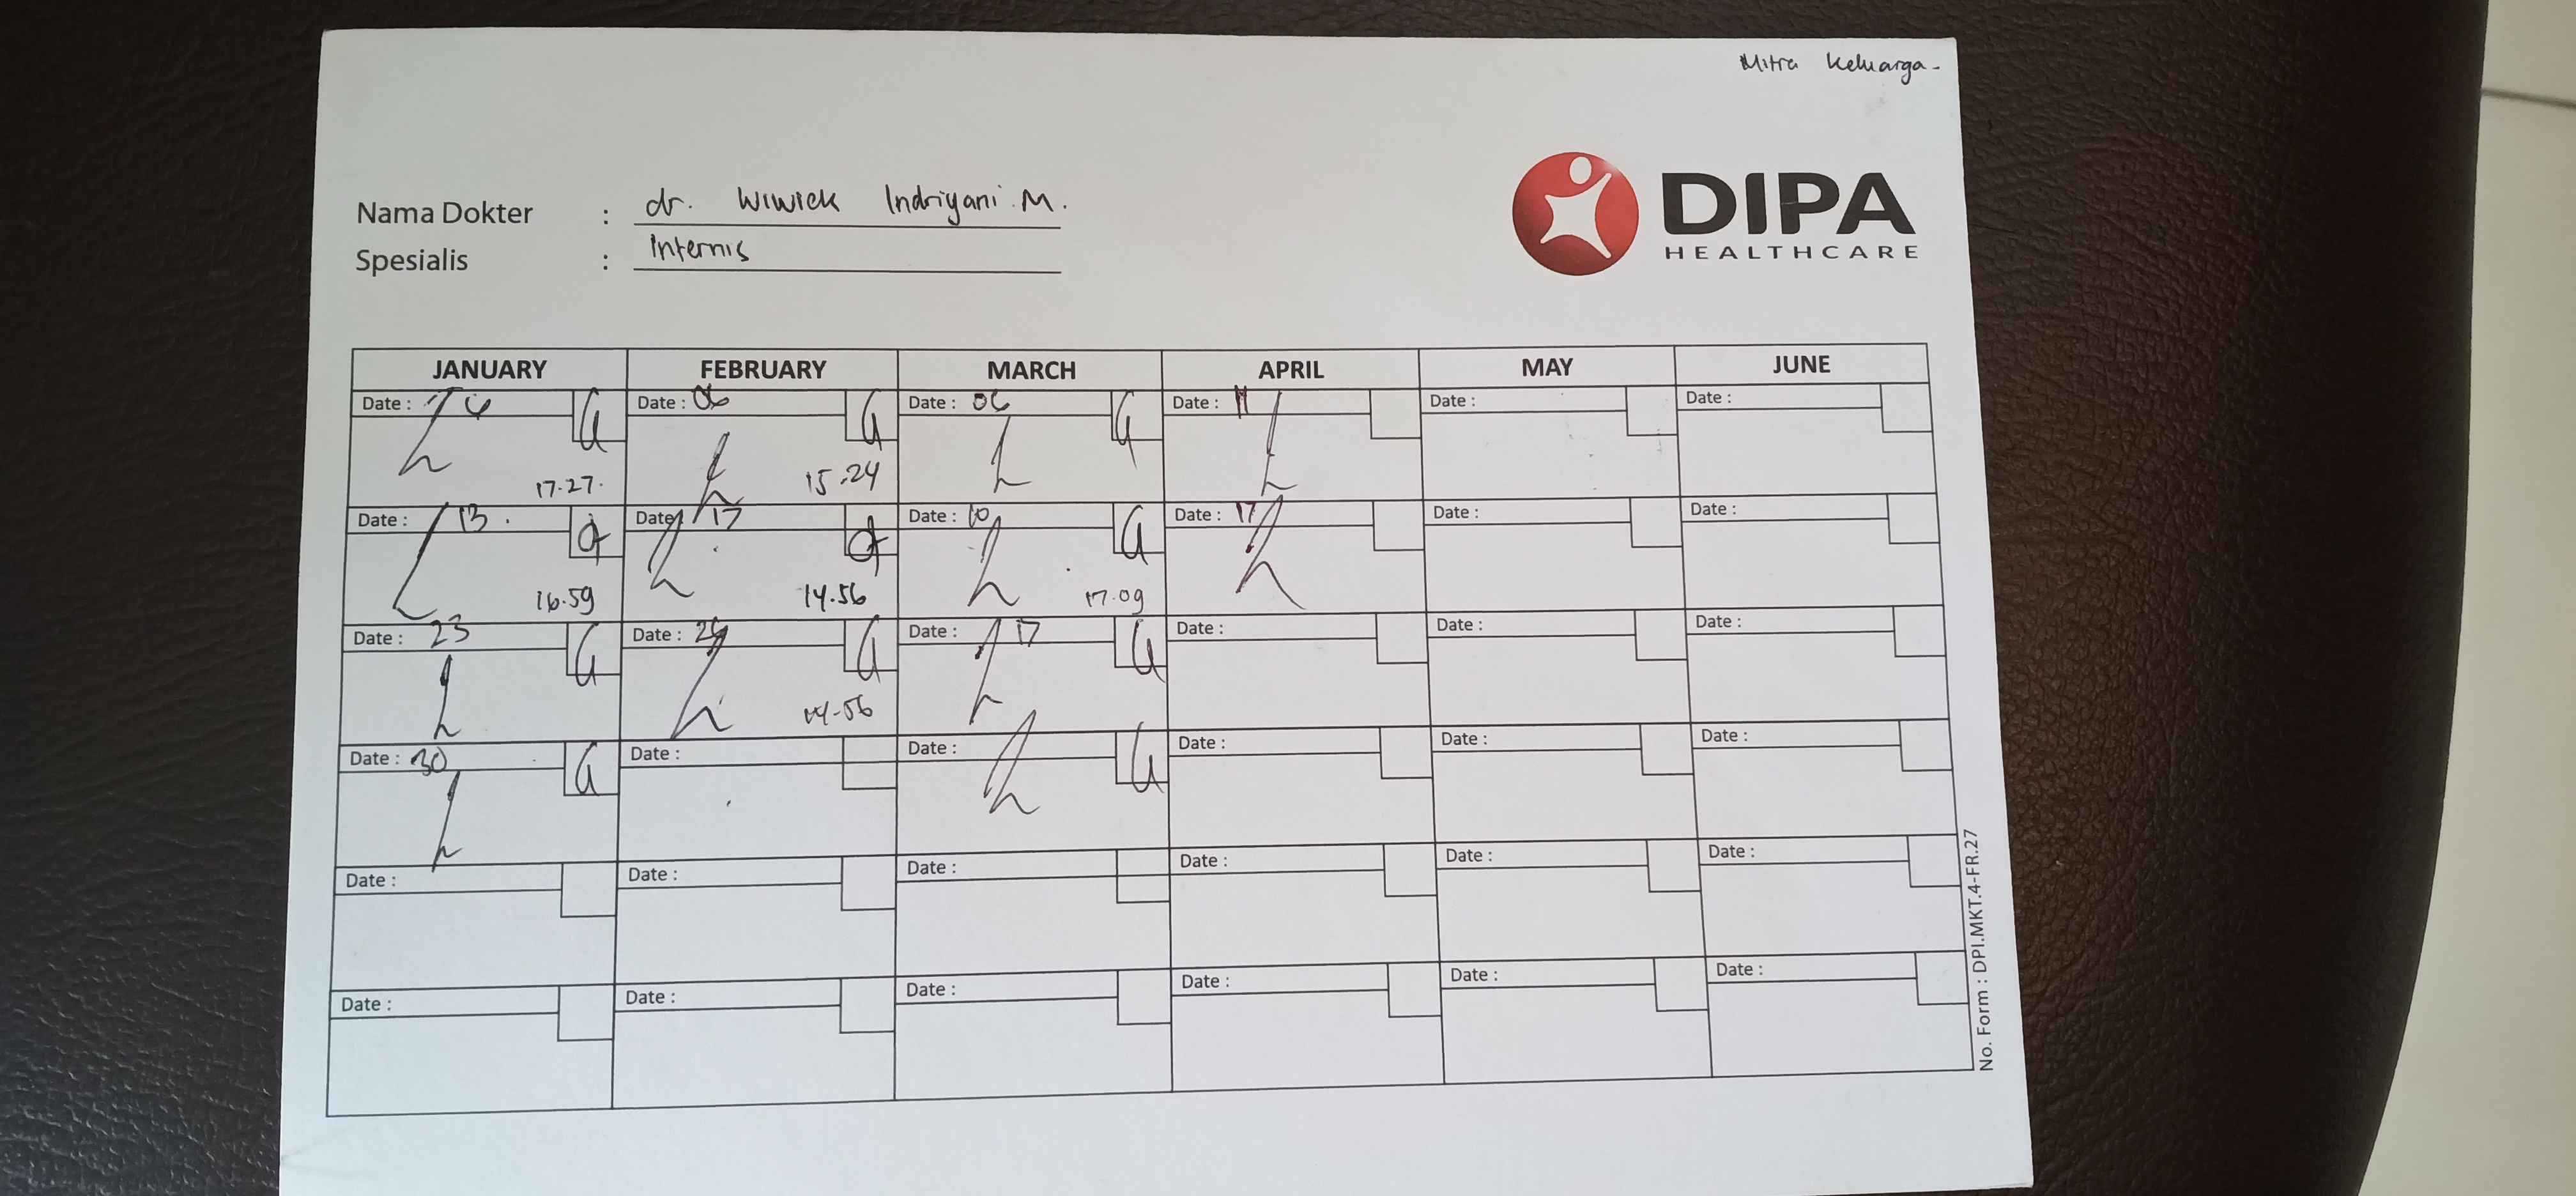 Mitra Keluarga-
DIPA
HEALTHCARE
Nama Dokter : dr. Wiwiek Indriyani M.
Spesialis : Internis
JANUARY FEBRUARY MARCH APRIL MAY JUNE
Date : Date : 06 Date : 06 Date : 11 Date : Date :
17.27. 15.24
Date : 13. Date : 17 Date : 10 Date : 17 Date : Date :
16.59 14.56 17.09
Date : 23 Date : Date : 17 Date : Date : Date :
Date : 30 Date : Date : Date : Date : Date :
Date : Date : Date : Date : Date : Date :
Date : Date : Date : Date : Date : Date :
No. Form : DPI.MKT.4-FR.27